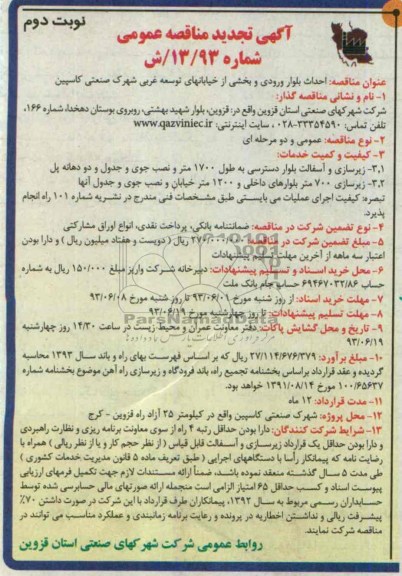 نوبت دوم
آگهی تجدید مناقصه عمومی
شماره ۱۳/۹۳/ش
عنوان مناقصه: احداث بلوار ورودی و بخشی از خیابانهای توسعه غربی شهرک صنعتی کاسپین
۱- نام و نشانی مناقصه گذار:
شرکت شهرکهای صنعتی استان قزوین واقع در: قزوین، بلوار شهید بهشتی، روبروی بوستان دهخدا، شماره ۱۶۶،
تلفن تماس: ۳۳۳۵۴۵۹۰-۰۲۸ ، سایت اینترنتی: www.qazviniec.ir
۲- نوع مناقصه: عمومی و دو مرحله ای
۳- کیفیت و کمیت خدمات:
۳،۱- زیرسازی و آسفالت بلوار دسترسی به طول ۱۷۰۰ متر و نصب جوی و جدول و دو دهانه پل
۳،۲- زیرسازی ۷۰۰ متر بلوارهای داخلی و ۱۲۰۰ متر خیابان و نصب جوی و جدول آنها
تبصره: کیفیت اجرای عملیات می بایستی طبق مشخصات فنی مندرج در نشریه شماره ۱۰۱ راه انجام
پذیرد.
۴- نوع تضمین شرکت در مناقصه: ضمانتنامه بانکی، پرداخت نقدی، انواع اوراق مشارکتی
۵- مبلغ تضمین شرکت در مناقصه: ریال (دویست و هفتاد میلیون ریال) و دارا بودن
اعتبار سه ماهه از آخرین مهلت تسلیم پیشنهادات
۶- محل خرید اسناد و تسلیم پیشنهادات: دبیرخانه شرکت واریز مبلغ ۱۵۰/۰۰۰ ریال به شماره
حساب ۶۹۴۶۷۰۳۲/۸۶ حساب جام بانک ملت
۷- مهلت خرید اسناد: از روز شنبه مورخ ۹۳/۰۶/۰۱ تا روز شنبه مورخ ۹۳/۰۶/۰۸
۸- مهلت تسلیم پیشنهادات: تا روز چهارشنبه مورخ ۹۳/۰۶/۱۹
۹- تاریخ و محل گشایش پاکات: دفتر معاونت عمران و محیط زیست در ساعت ۱۴/۳۰ روز چهارشنبه
۹۳/۰۶/۱۹
۱۰- مبلغ برآورد: ۲۷/۱۱۴/۶۷۶/۳۷۹ ریال که بر اساس فهرست بهای راه و باند سال ۱۳۹۳ محاسبه
گردیده و عقد قرارداد براساس بخشنامه تجمیع راه، باند فرودگاه و زیرسازی راه آهن موضوع بخشنامه شماره
۱۰۰/۶۵۶۳۷ مورخ ۱۳۹۱/۰۸/۱۴ خواهد بود.
۱۱- مدت قرارداد: ۱۲ ماه
۱۲- محل پروژه: شهرک صنعتی کاسپین واقع در کیلومتر ۲۵ آزاد راه قزوین - کرج
۱۳- شرایط شرکت کنندگان: دارا بودن حداقل رتبه ۴ راه از سوی معاونت برنامه ریزی و نظارت راهبردی
و دارا بودن حداقل یک قرارداد زیرسازی و آسفالت قابل قیاس (از نظر حجم کار و یا از نظر ریالی) همراه با
رضایت نامه که پیمانکار رأسا با دستگاههای اجرایی (طبق تعریف ماده ۵ قانون مدیریت خدمات کشوری)
طی مدت ۵ سال گذشته منعقد نموده باشد، ضمناً ارائه مستندات لازم جهت تکمیل فرمهای ارزیابی
پیوست اسناد و کسب حداقل ۶۵ امتیاز الزامی است منجمله ارائه صورتهای مالی حسابرسی شده توسط
حسابداران رسمی مربوط به سال ۱۳۹۲، پیمانکاران طرف قرارداد با این شرکت در صورت داشتن ۷۰٪
پیشرفت ریالی و نداشتن اخطاریه در پرونده و رعایت برنامه زمانبندی و عملکرد مناسب می توانند در
مناقصه شرکت نمایند.
روابط عمومی شرکت شهرکهای صنعتی استان قزوین